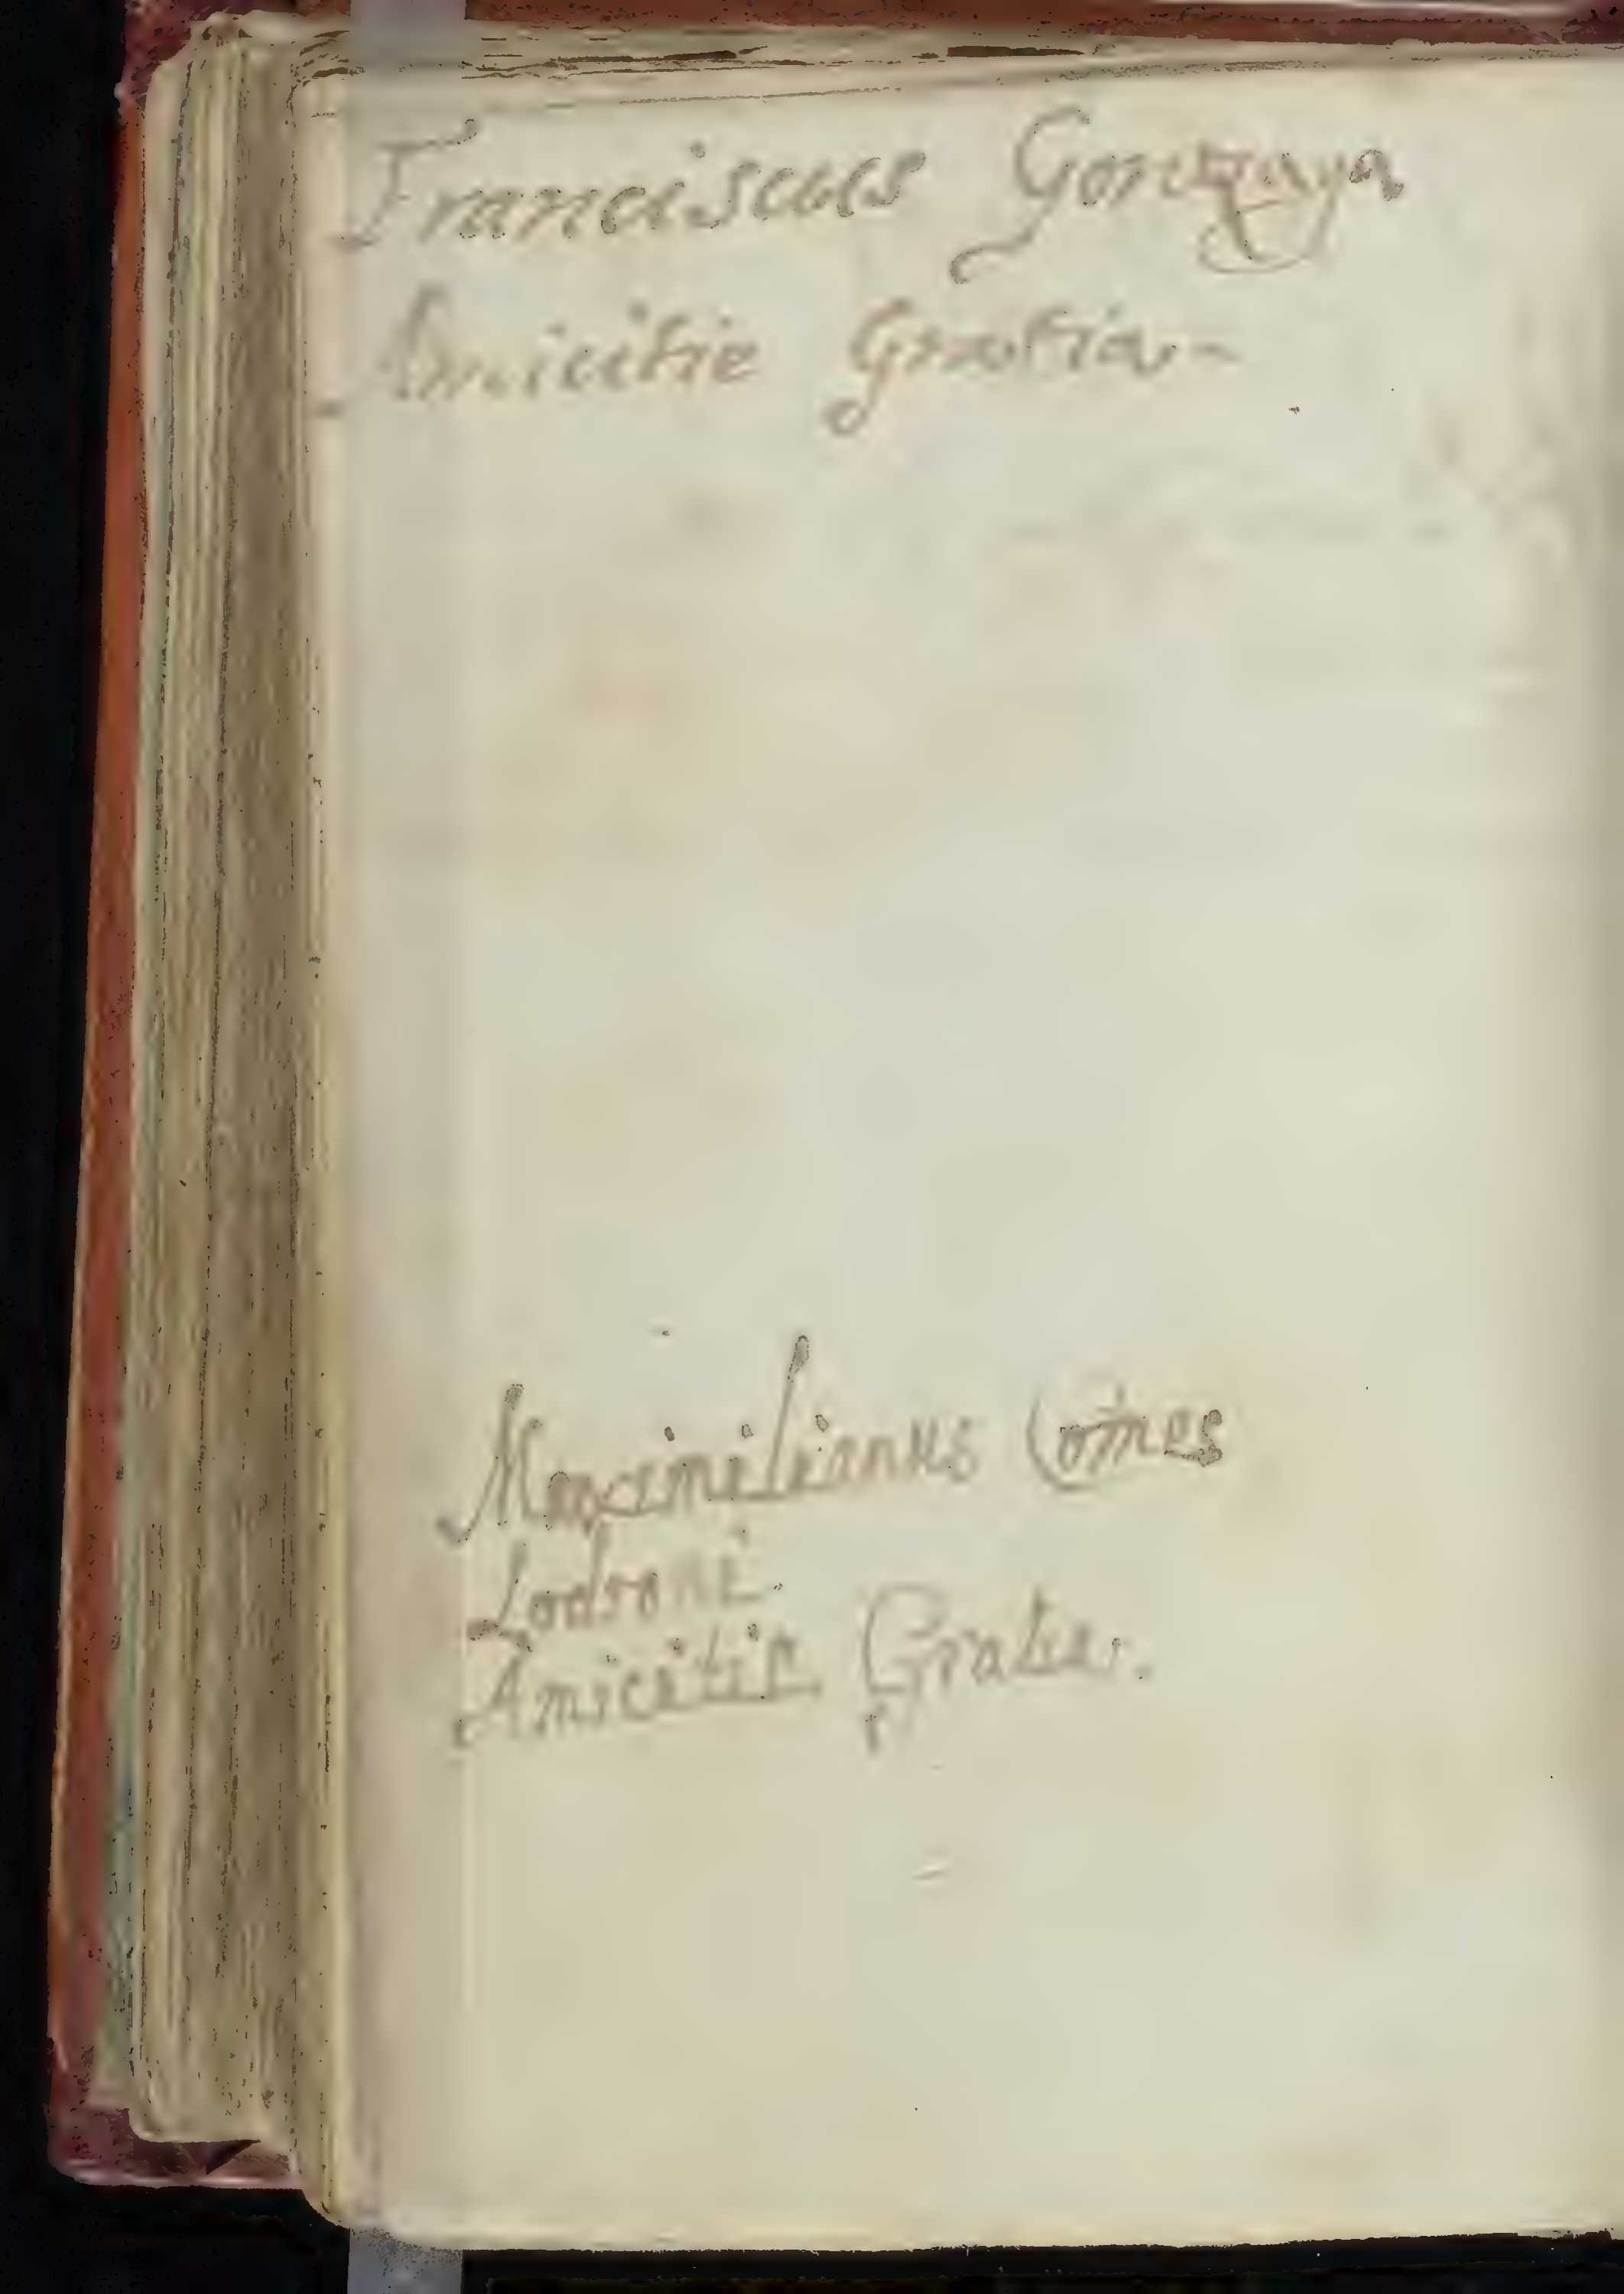 Franciscus Gonzaga
Amicitie Gratia
Maximilianus Comes
Lodroni.
Amicitie Gratia.